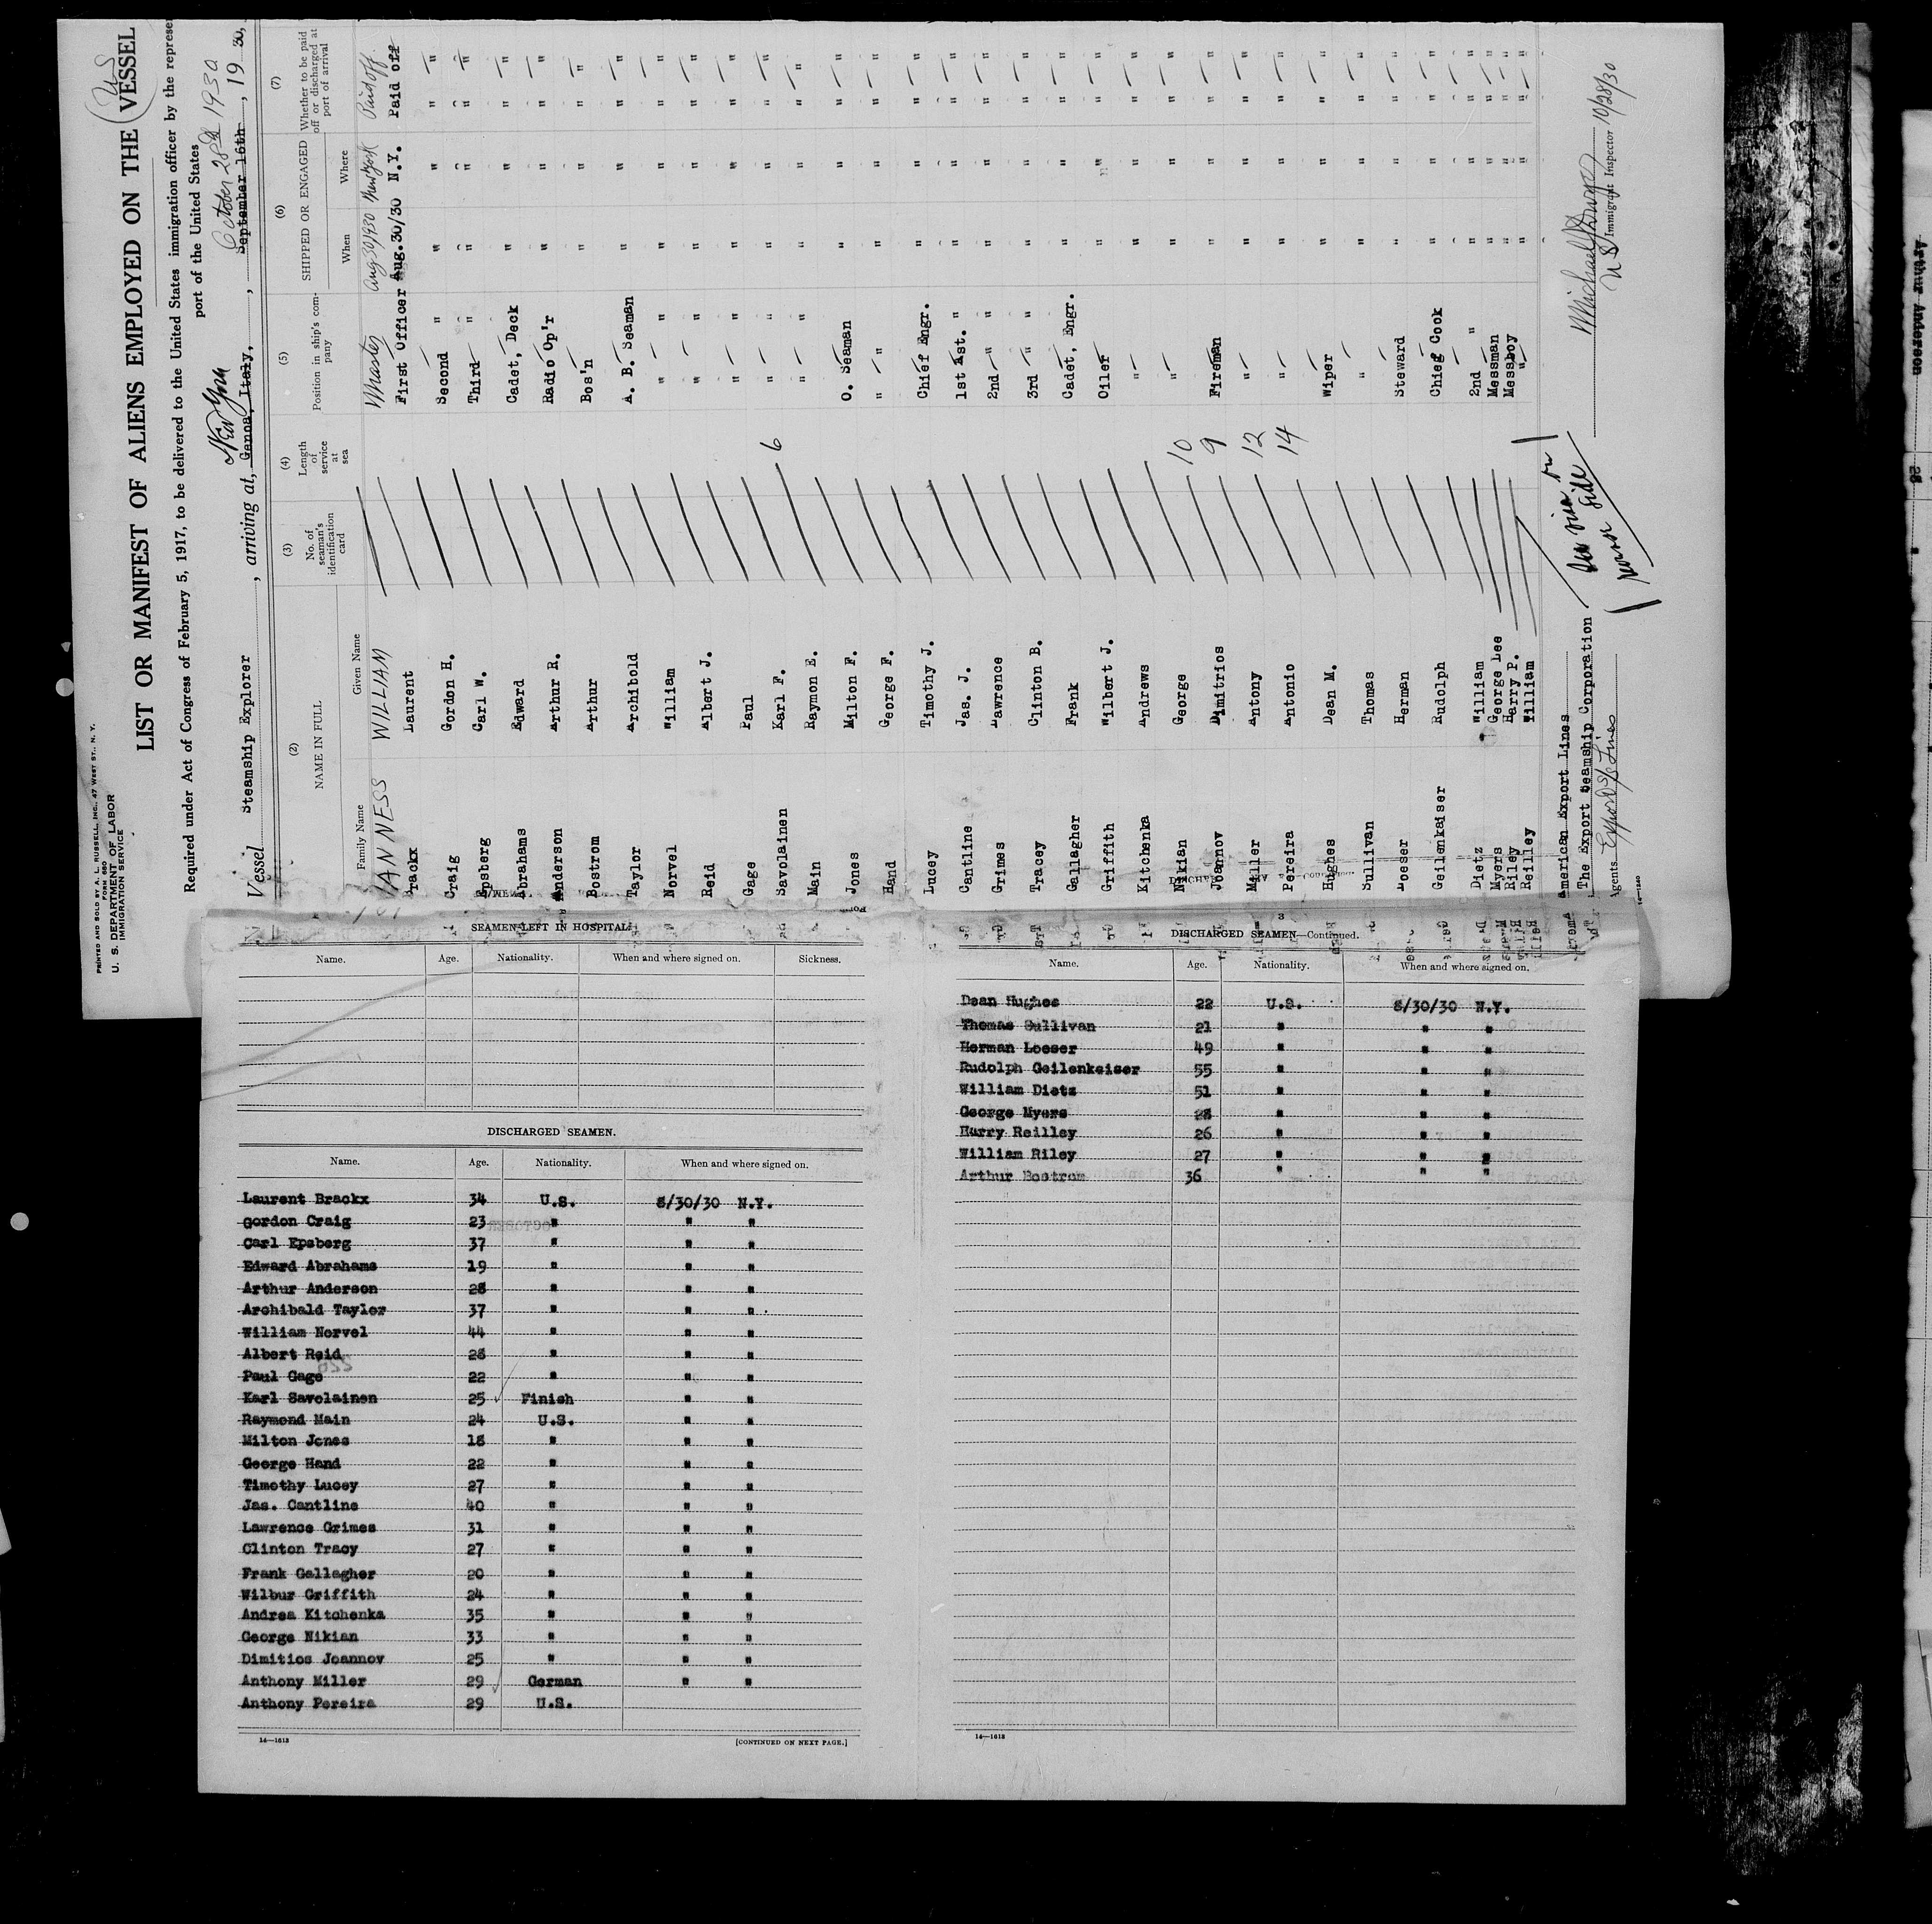 PRINTED AND SOLD BY A. L. RUSSELL, INC., 47 WEST ST., N. Y.
FORM 680
U. S. DEPARTMENT OF LABOR
IMMIGRATION SERVICE
US
LIST OR MANIFEST OF ALIENS EMPLOYED ON THE VESSEL
Required under Act of Congress of February 5, 1917, to be delivered to the United States immigration officer by the represe
port of the United States
New York October 28th 1930
Vessel Steamship Explorer, arriving at, Genoa, Italy, September 16th, 1930,
(2) (3) (4) (5) (6) (7)
NAME IN FULL
Family Name Given Name
No. of seaman's identification card
Length of service at sea
Position in ship's company
SHIPPED OR ENGAGED
When Where
Whether to be paid off or discharged at port of arrival
VAN NESS WILLIAM Master Aug 30/930 New York Paid off
Brackx Laurent First Officer Aug.30/30 N.Y. Paid off
Craig Gordon H. Second " " " " "
Epsberg Carl W. Third " " " " "
Abrahams Edward Cadet, Deck " " " "
Anderson Arthur R. Radio Op'r " " " "
Bostrom Arthur Bos'n " " " "
Taylor Archibold A. B. Seaman " " " "
Norvel William " " " " " "
Reid Albert J. " " " " " "
Gage Paul " " " " " "
Savolainen Karl F. 6 " " " " " "
Main Raymon E. " " " " " "
Jones Milton F. O. Seaman " " " "
Hand George F. " " " " " "
Lucey Timothy J. Chief Engr. " " " "
Cantline Jas. J. 1st Ast. " " " " "
Grimes Lawrence 2nd " " " " " "
Tracey Clinton B. 3rd " " " " " "
Gallagher Frank Cadet, Engr. " " " "
Griffith Wilbert J. Oiler " " " "
Kitchenka Andrews " " " " "
Nikian George 10 " " " " "
Joannov Dimitrios 9 Fireman " " " "
Miller Antony 12 " " " " "
Pereira Antonio 14 " " " " "
Hughes Dean M. Wiper " " " "
Sullivan Thomas " " " " "
Loeser Herman Steward " " " "
Geilenkaiser Rudolph Chief Cook " " " "
Dietz William 2nd " " " " "
Myers George Lee Messman " " " "
Riley Harry P. Messboy " " " "
Reilley William " " " " "
American Export Lines
The Export Steamship Corporation
Agents. Export S/S Lines
14—1240
See visa on
reverse side
US Immigrant Inspector 10/28/30
SEAMEN LEFT IN HOSPITAL
Name. Age. Nationality. When and where signed on. Sickness.
DISCHARGED SEAMEN.
Name. Age. Nationality. When and where signed on.
Laurent Brackx 34 U.S. 8/30/30 N.Y.
Gordon Craig 23 " " "
Carl Epsberg 37 " " "
Edward Abrahams 19 " " "
Arthur Anderson 28 " " "
Archibald Taylor 37 " " "
William Norvel 44 " " "
Albert Reid 28 " " "
Paul Gage 22 " " "
Karl Savolainen 25 Finish " "
Raymond Main 24 U.S. " "
Milton Jones 18 " " "
George Hand 22 " " "
Timothy Lucey 27 " " "
Jas. Cantline 40 " " "
Lawrence Grimes 31 " " "
Clinton Tracy 27 " " "
Frank Gallagher 20 " " "
Wilbur Griffith 24 " " "
Andrea Kitchenka 35 " " "
George Nikian 33 " " "
Dimitios Joannov 25 " " "
Anthony Miller 29 German " "
Anthony Pereira 29 U.S.
14—1613
[CONTINUED ON NEXT PAGE.]
3
DISCHARGED SEAMEN—Continued.
Name. Age. Nationality. When and where signed on.
Dean Hughes 22 U.S. 8/30/30 N.Y.
Thomas Sullivan 21 " " "
Herman Loeser 49 " " "
Rudolph Geilenkeiser 55 " " "
William Dietz 51 " " "
George Myers 28 " " "
Harry Reilley 26 " " "
William Riley 27 " " "
Arthur Bostrom 36 " " "
14—1613
Arthur Anderson
28